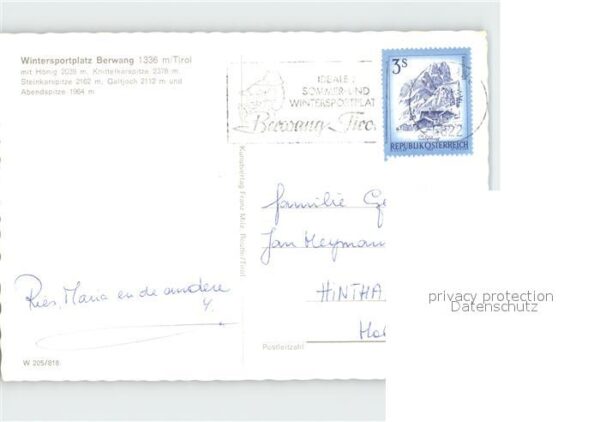 Wintersportplatz Berwang 1336 m/Tirol
mit Hönig 2039 m, Knittelkarspitze 2378 m,
Steinkarspitze 2162 m, Galtjoch 2112 m und
Abendspitze 1964 m
IDEALER
SOMMER-UND
WINTERSPORTPLAT
Berwang Tirol
3S
6622
REPUBLIK ÖSTERREICH
Kunstverlag Franz Milz, Reutte/Tirol
familie Ge
Jan Heyman
HINTHA
Hol
Ries, Maria en de andere
4.
Postleitzahl
W 205/818
privacy protection
Datenschutz